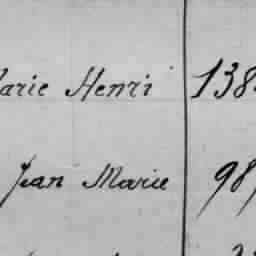 Marie Henri 138
Jean Marie 98